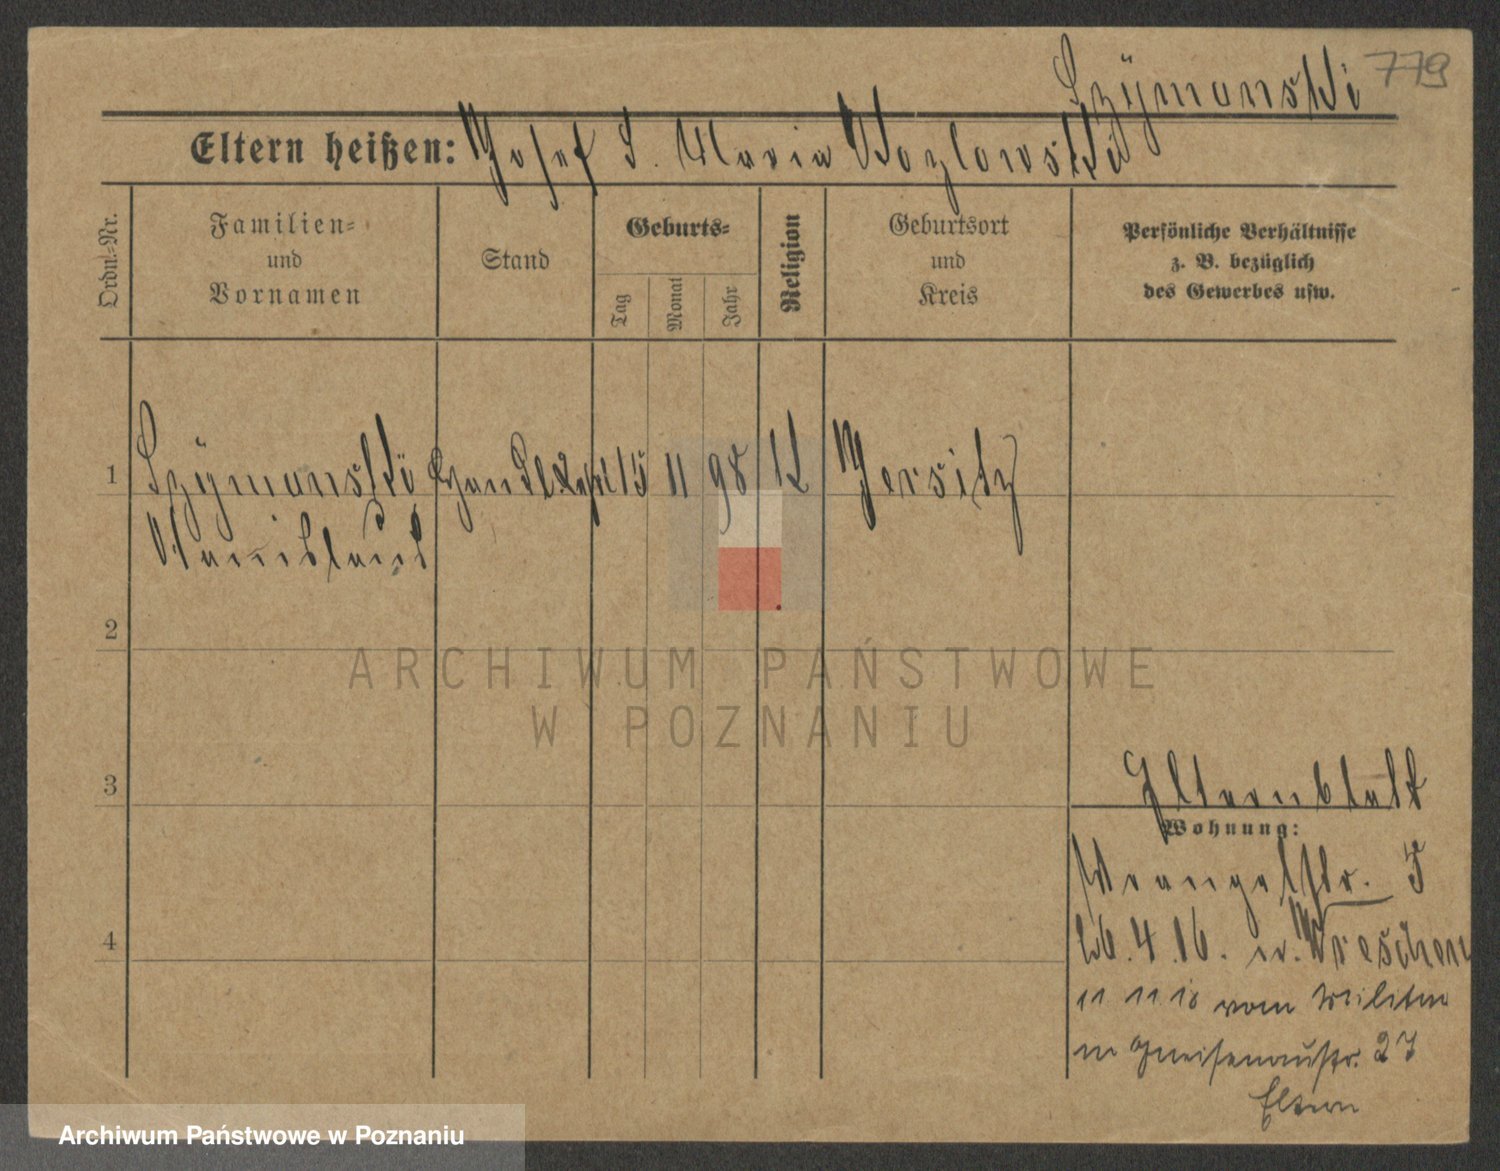 Szymanski 779
Eltern heißen: Josef S. Maria Kozlowski
Ordn.-Nr.
Familien-
und
Vornamen
Stand
Geburts-
Tag
Monat
Jahr
Religion
Geburtsort
und
Kreis
Persönliche Verhältnisse
z. B. bezüglich
des Gewerbes usw.
1 Szymanski 15 11 98 K Jersitz
Stanislaus
2
3
4
Elternblatt
Wohnung:
Wrangelstr. 5
26.4.16. n. Wreschen
11 11 18 vom Militär
n Gneisenaustr. 27
Eltern
ARCHIWUM PAŃSTWOWE
W POZNANIU
Archiwum Państwowe w Poznaniu